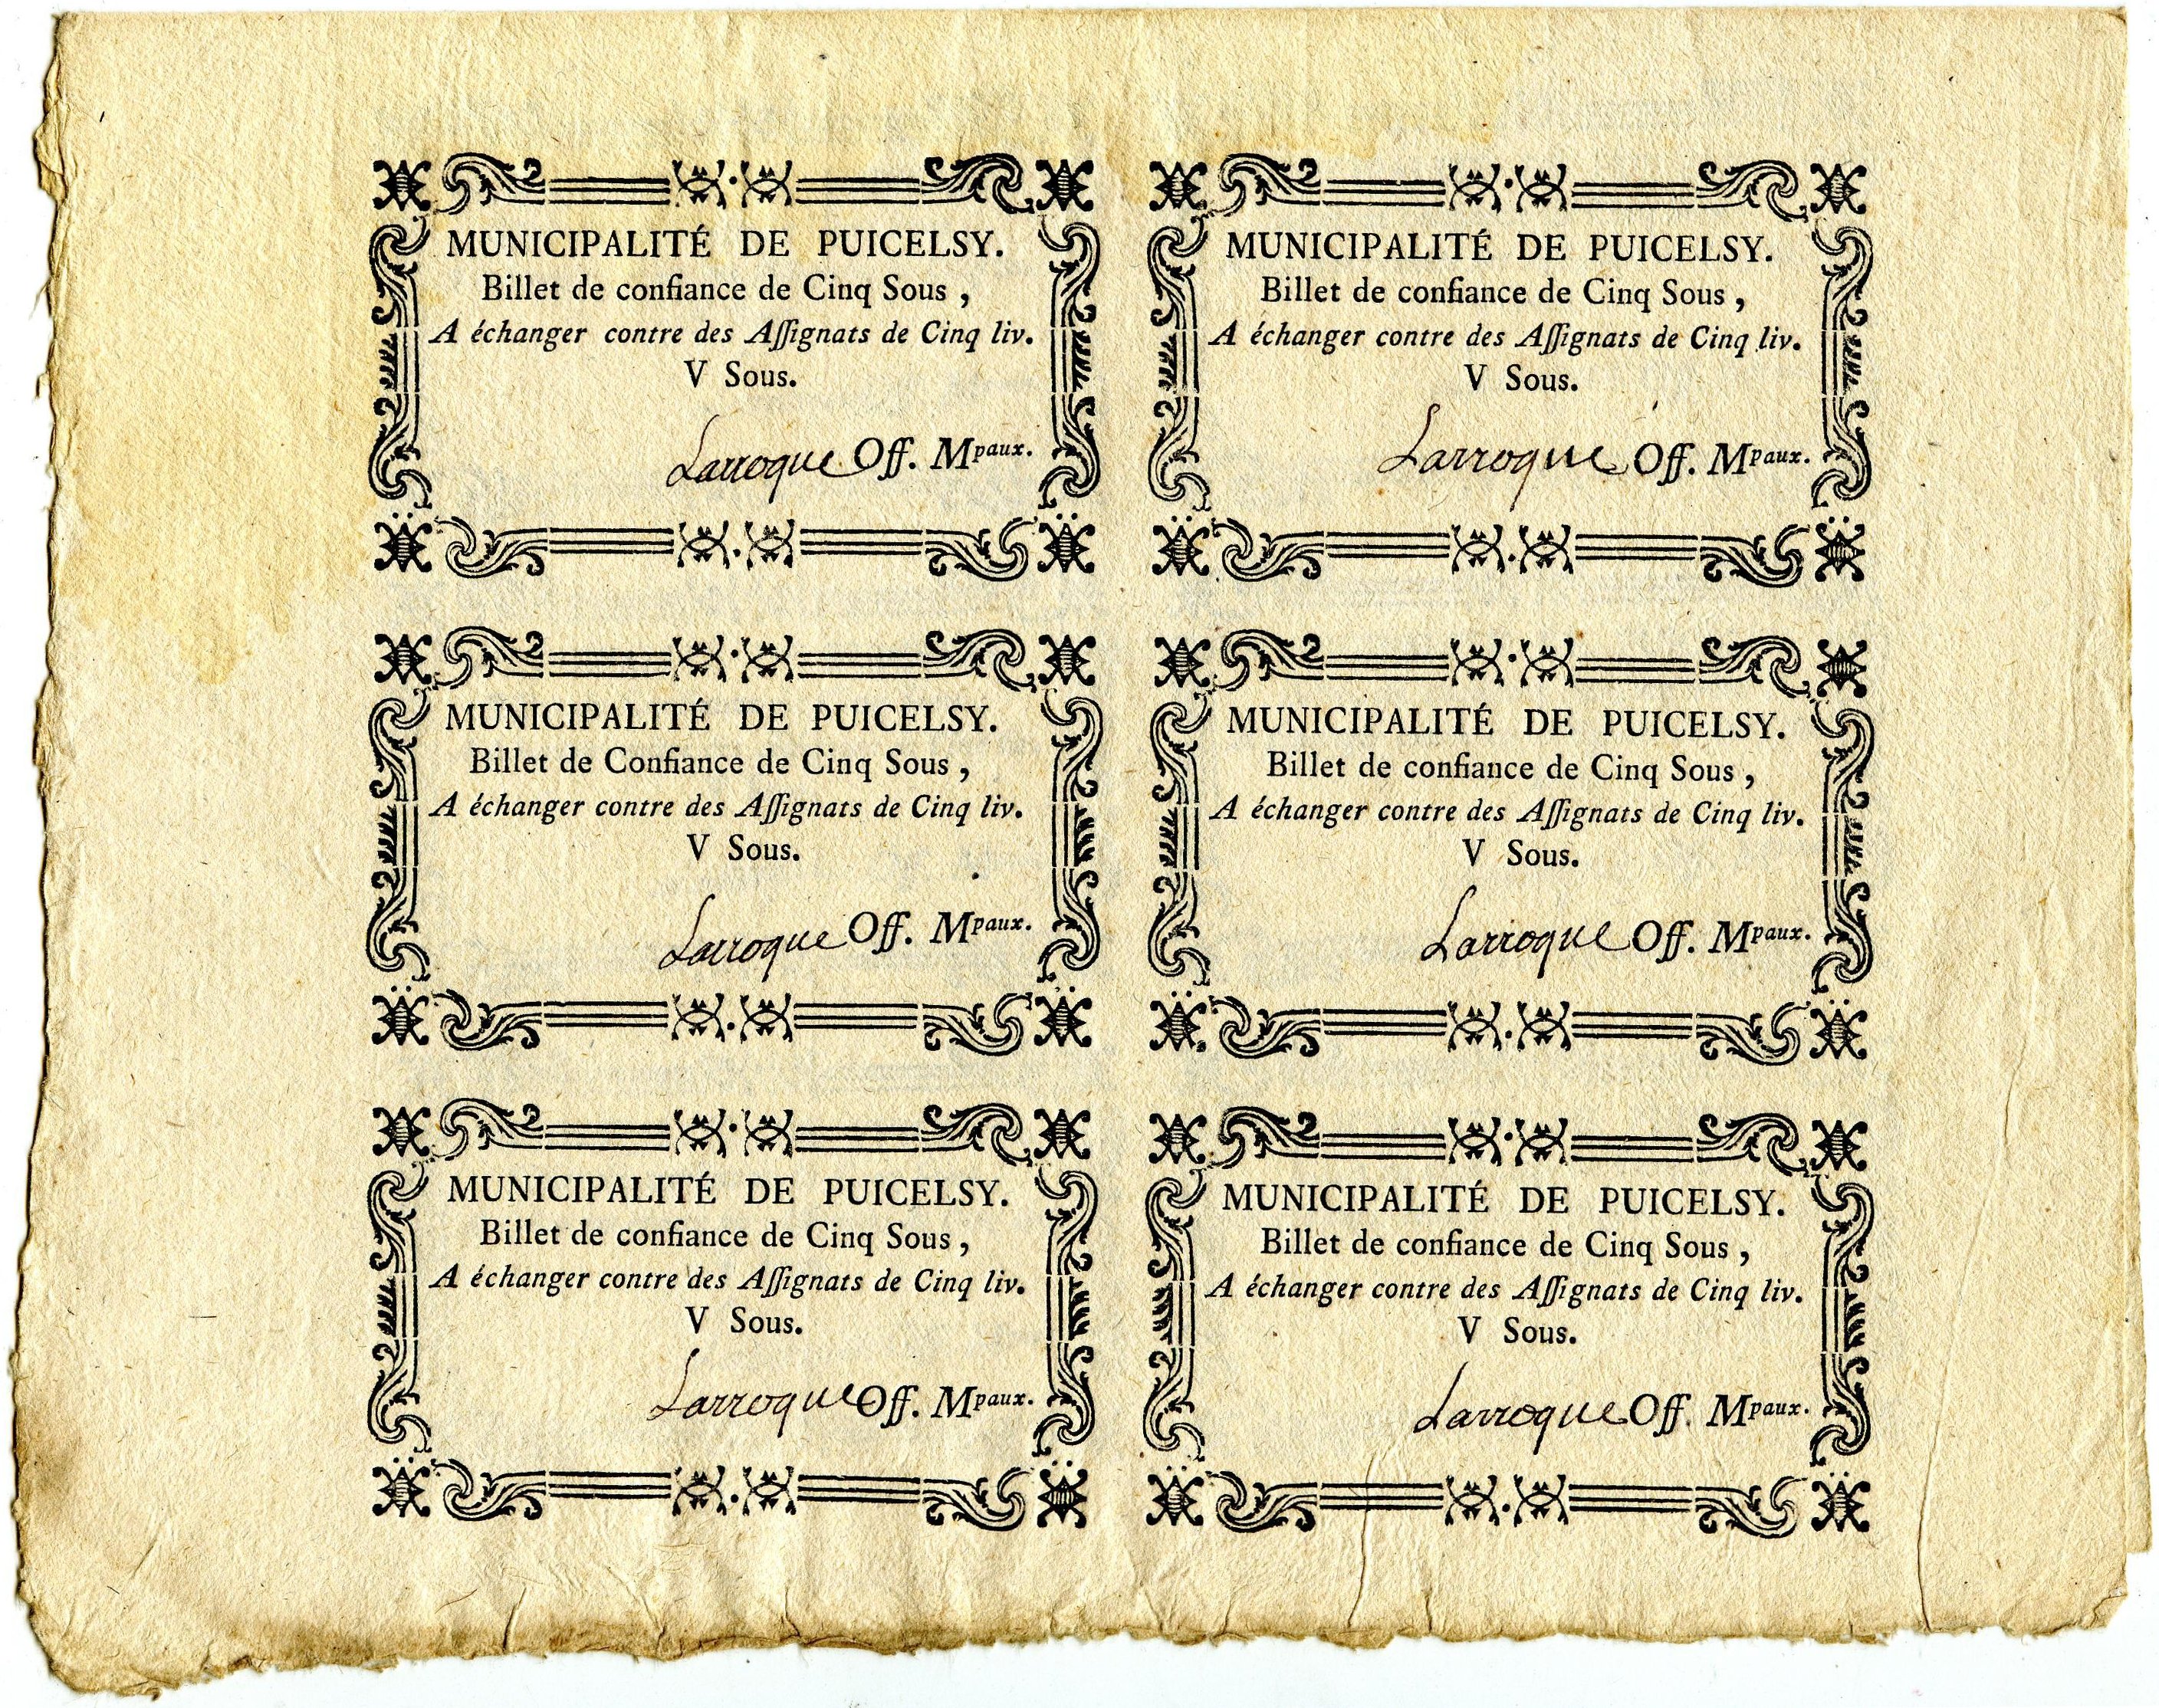 MUNICIPALITÉ DE PUICELSY.
Billet de confiance de Cinq Sous,
A échanger contre des Aſſignats de Cinq liv.
V Sous.
Larroque Off. Mpaux.
MUNICIPALITÉ DE PUICELSY.
Billet de confiance de Cinq Sous,
A échanger contre des Aſſignats de Cinq liv.
V Sous.
Larroque Off. Mpaux.
MUNICIPALITÉ DE PUICELSY.
Billet de Confiance de Cinq Sous,
A échanger contre des Aſſignats de Cinq liv.
V Sous.
Larroque Off. Mpaux.
MUNICIPALITÉ DE PUICELSY.
Billet de confiance de Cinq Sous,
A échanger contre des Aſſignats de Cinq liv.
V Sous.
Larroque Off. Mpaux.
MUNICIPALITÉ DE PUICELSY.
Billet de confiance de Cinq Sous,
A échanger contre des Aſſignats de Cinq liv.
V Sous.
Larroque Off. Mpaux.
MUNICIPALITÉ DE PUICELSY.
Billet de confiance de Cinq Sous,
A échanger contre des Aſſignats de Cinq liv.
V Sous.
Larroque Off. Mpaux.